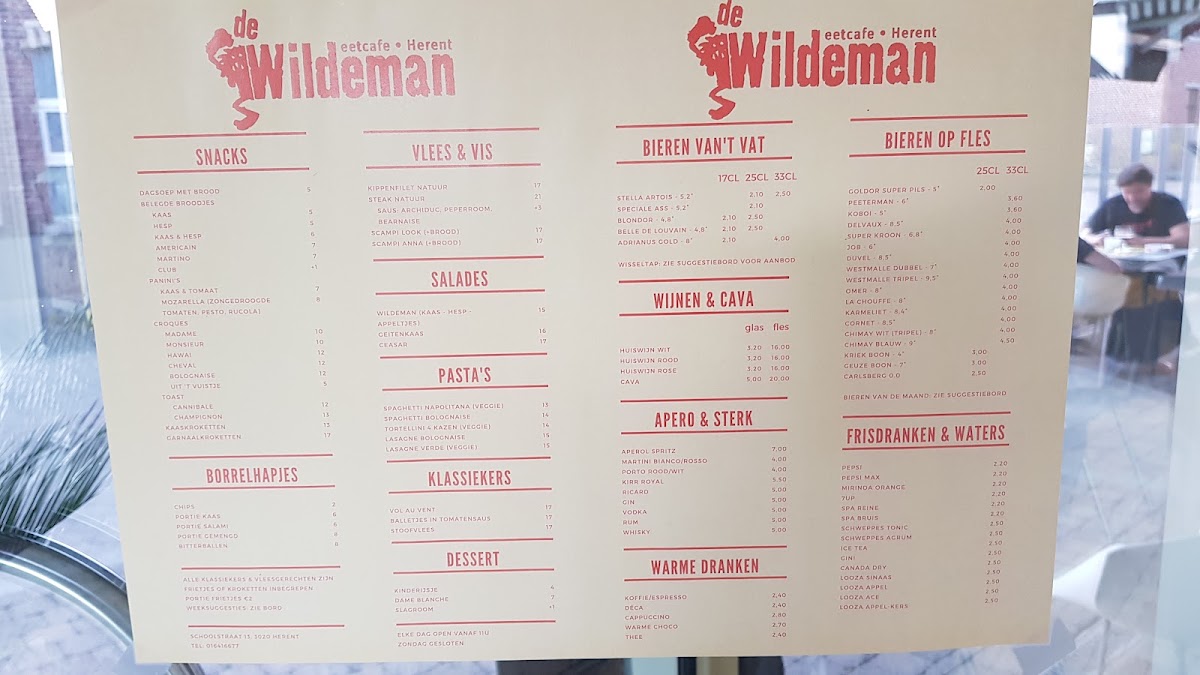 de
eetcafe • Herent
Wildeman
SNACKS
DAGSOEP MET BROOD 5
BELEGDE BROODJES
KAAS 5
HESP 5
KAAS & HESP 6
AMERICAIN 7
MARTINO 7
CLUB +1
PANINI'S
KAAS & TOMAAT 7
MOZARELLA (ZONGEDROOGDE 8
TOMATEN, PESTO, RUCOLA)
CROQUES
MADAME 10
MONSIEUR 10
HAWAI 12
CHEVAL 12
BOLOGNAISE 12
UIT 'T VUISTJE 5
TOAST
CANNIBALE 12
CHAMPIGNON 13
KAASKROKETTEN 13
GARNAALKROKETTEN 17
BORRELHAPJES
CHIPS 2
PORTIE KAAS 6
PORTIE SALAMI 6
PORTIE GEMENGD 8
BITTERBALLEN 8
ALLE KLASSIEKERS & VLEESGERECHTEN ZIJN
FRIETJES OF KROKETTEN INBEGREPEN
PORTIE FRIETJES €2
WEEKSUGGESTIES: ZIE BORD
SCHOOLSTRAAT 13, 3020 HERENT
TEL: 016416677
VLEES & VIS
KIPPENFILET NATUUR 17
STEAK NATUUR 21
SAUS: ARCHIDUC, PEPERROOM, +3
BEARNAISE
SCAMPI LOOK (+BROOD) 17
SCAMPI ANNA (+BROOD) 17
SALADES
WILDEMAN (KAAS - HESP - 15
APPELTJES)
GEITENKAAS 16
CEASAR 17
PASTA'S
SPAGHETTI NAPOLITANA (VEGGIE) 13
SPAGHETTI BOLOGNAISE 14
TORTELLINI 4 KAZEN (VEGGIE) 14
LASAGNE BOLOGNAISE 15
LASAGNE VERDE (VEGGIE) 15
KLASSIEKERS
VOL AU VENT 17
BALLETJES IN TOMATENSAUS 17
STOOFVLEES 17
DESSERT
KINDERIJSJE 4
DAME BLANCHE 7
SLAGROOM +1
ELKE DAG OPEN VANAF 11U
ZONDAG GESLOTEN
de
eetcafe • Herent
Wildeman
BIEREN VAN'T VAT
17CL 25CL 33CL
STELLA ARTOIS - 5,2° 2,10 2,50
SPECIALE ASS - 5,2° 2,10
BLONDOR - 4,8° 2,10 2,50
BELLE DE LOUVAIN - 4,8° 2,10 2,50
ADRIANUS GOLD - 8° 2,10 4,00
WISSELTAP: ZIE SUGGESTIEBORD VOOR AANBOD
WIJNEN & CAVA
glas fles
HUISWIJN WIT 3,20 16,00
HUISWIJN ROOD 3,20 16,00
HUISWIJN ROSE 3,20 16,00
CAVA 5,00 20,00
APERO & STERK
APEROL SPRITZ 7,00
MARTINI BIANCO/ROSSO 4,00
PORTO ROOD/WIT 4,00
KIRR ROYAL 5,50
RICARD 5,00
GIN 5,00
VODKA 5,00
RUM 5,00
WHISKY 5,00
WARME DRANKEN
KOFFIE/ESPRESSO 2,40
DÉCA 2,40
CAPPUCCINO 2,80
WARME CHOCO 2,70
THEE 2,40
BIEREN OP FLES
25CL 33CL
GOLDOR SUPER PILS - 5° 2,00
PEETERMAN - 6° 3,60
KOBOI - 5° 3,60
DELVAUX - 8,5° 4,00
SUPER KROON - 6,8° 4,00
JOB - 6° 4,00
DUVEL - 8,5° 4,00
WESTMALLE DUBBEL - 7° 4,00
WESTMALLE TRIPEL - 9,5° 4,00
OMER - 8° 4,00
LA CHOUFFE - 8° 4,00
KARMELIET - 8,4° 4,00
CORNET - 8,5° 4,00
CHIMAY WIT (TRIPEL) - 8° 4,00
CHIMAY BLAUW - 9° 4,50
KRIEK BOON - 4° 3,00
GEUZE BOON - 7° 3,00
CARLSBERG 0.0 2,50
BIEREN VAN DE MAAND: ZIE SUGGESTIEBORD
FRISDRANKEN & WATERS
PEPSI 2,20
PEPSI MAX 2,20
MIRINDA ORANGE 2,20
7UP 2,20
SPA REINE 2,20
SPA BRUIS 2,20
SCHWEPPES TONIC 2,50
SCHWEPPES AGRUM 2,50
ICE TEA 2,50
GINI 2,50
CANADA DRY 2,50
LOOZA SINAAS 2,50
LOOZA APPEL 2,50
LOOZA ACE 2,50
LOOZA APPEL-KERS 2,50